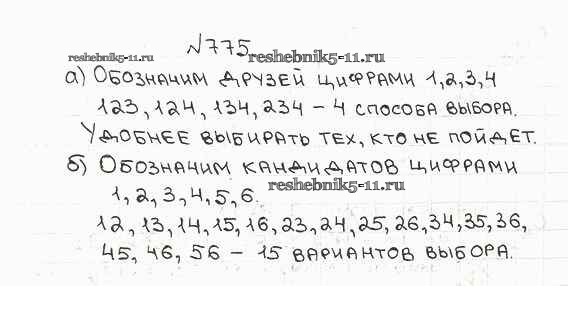 №775
reshebnik5-11.ru reshebnik5-11.ru
а) Обозначим друзей цифрами 1,2,3,4
123, 124, 134, 234 – 4 способа выбора.
Удобнее выбирать тех, кто не пойдет.
б) Обозначим кандидатов цифрами
reshebnik5-11.ru
1, 2, 3, 4, 5, 6.
12, 13, 14, 15, 16, 23, 24, 25, 26, 34, 35, 36,
45, 46, 56 – 15 вариантов выбора.